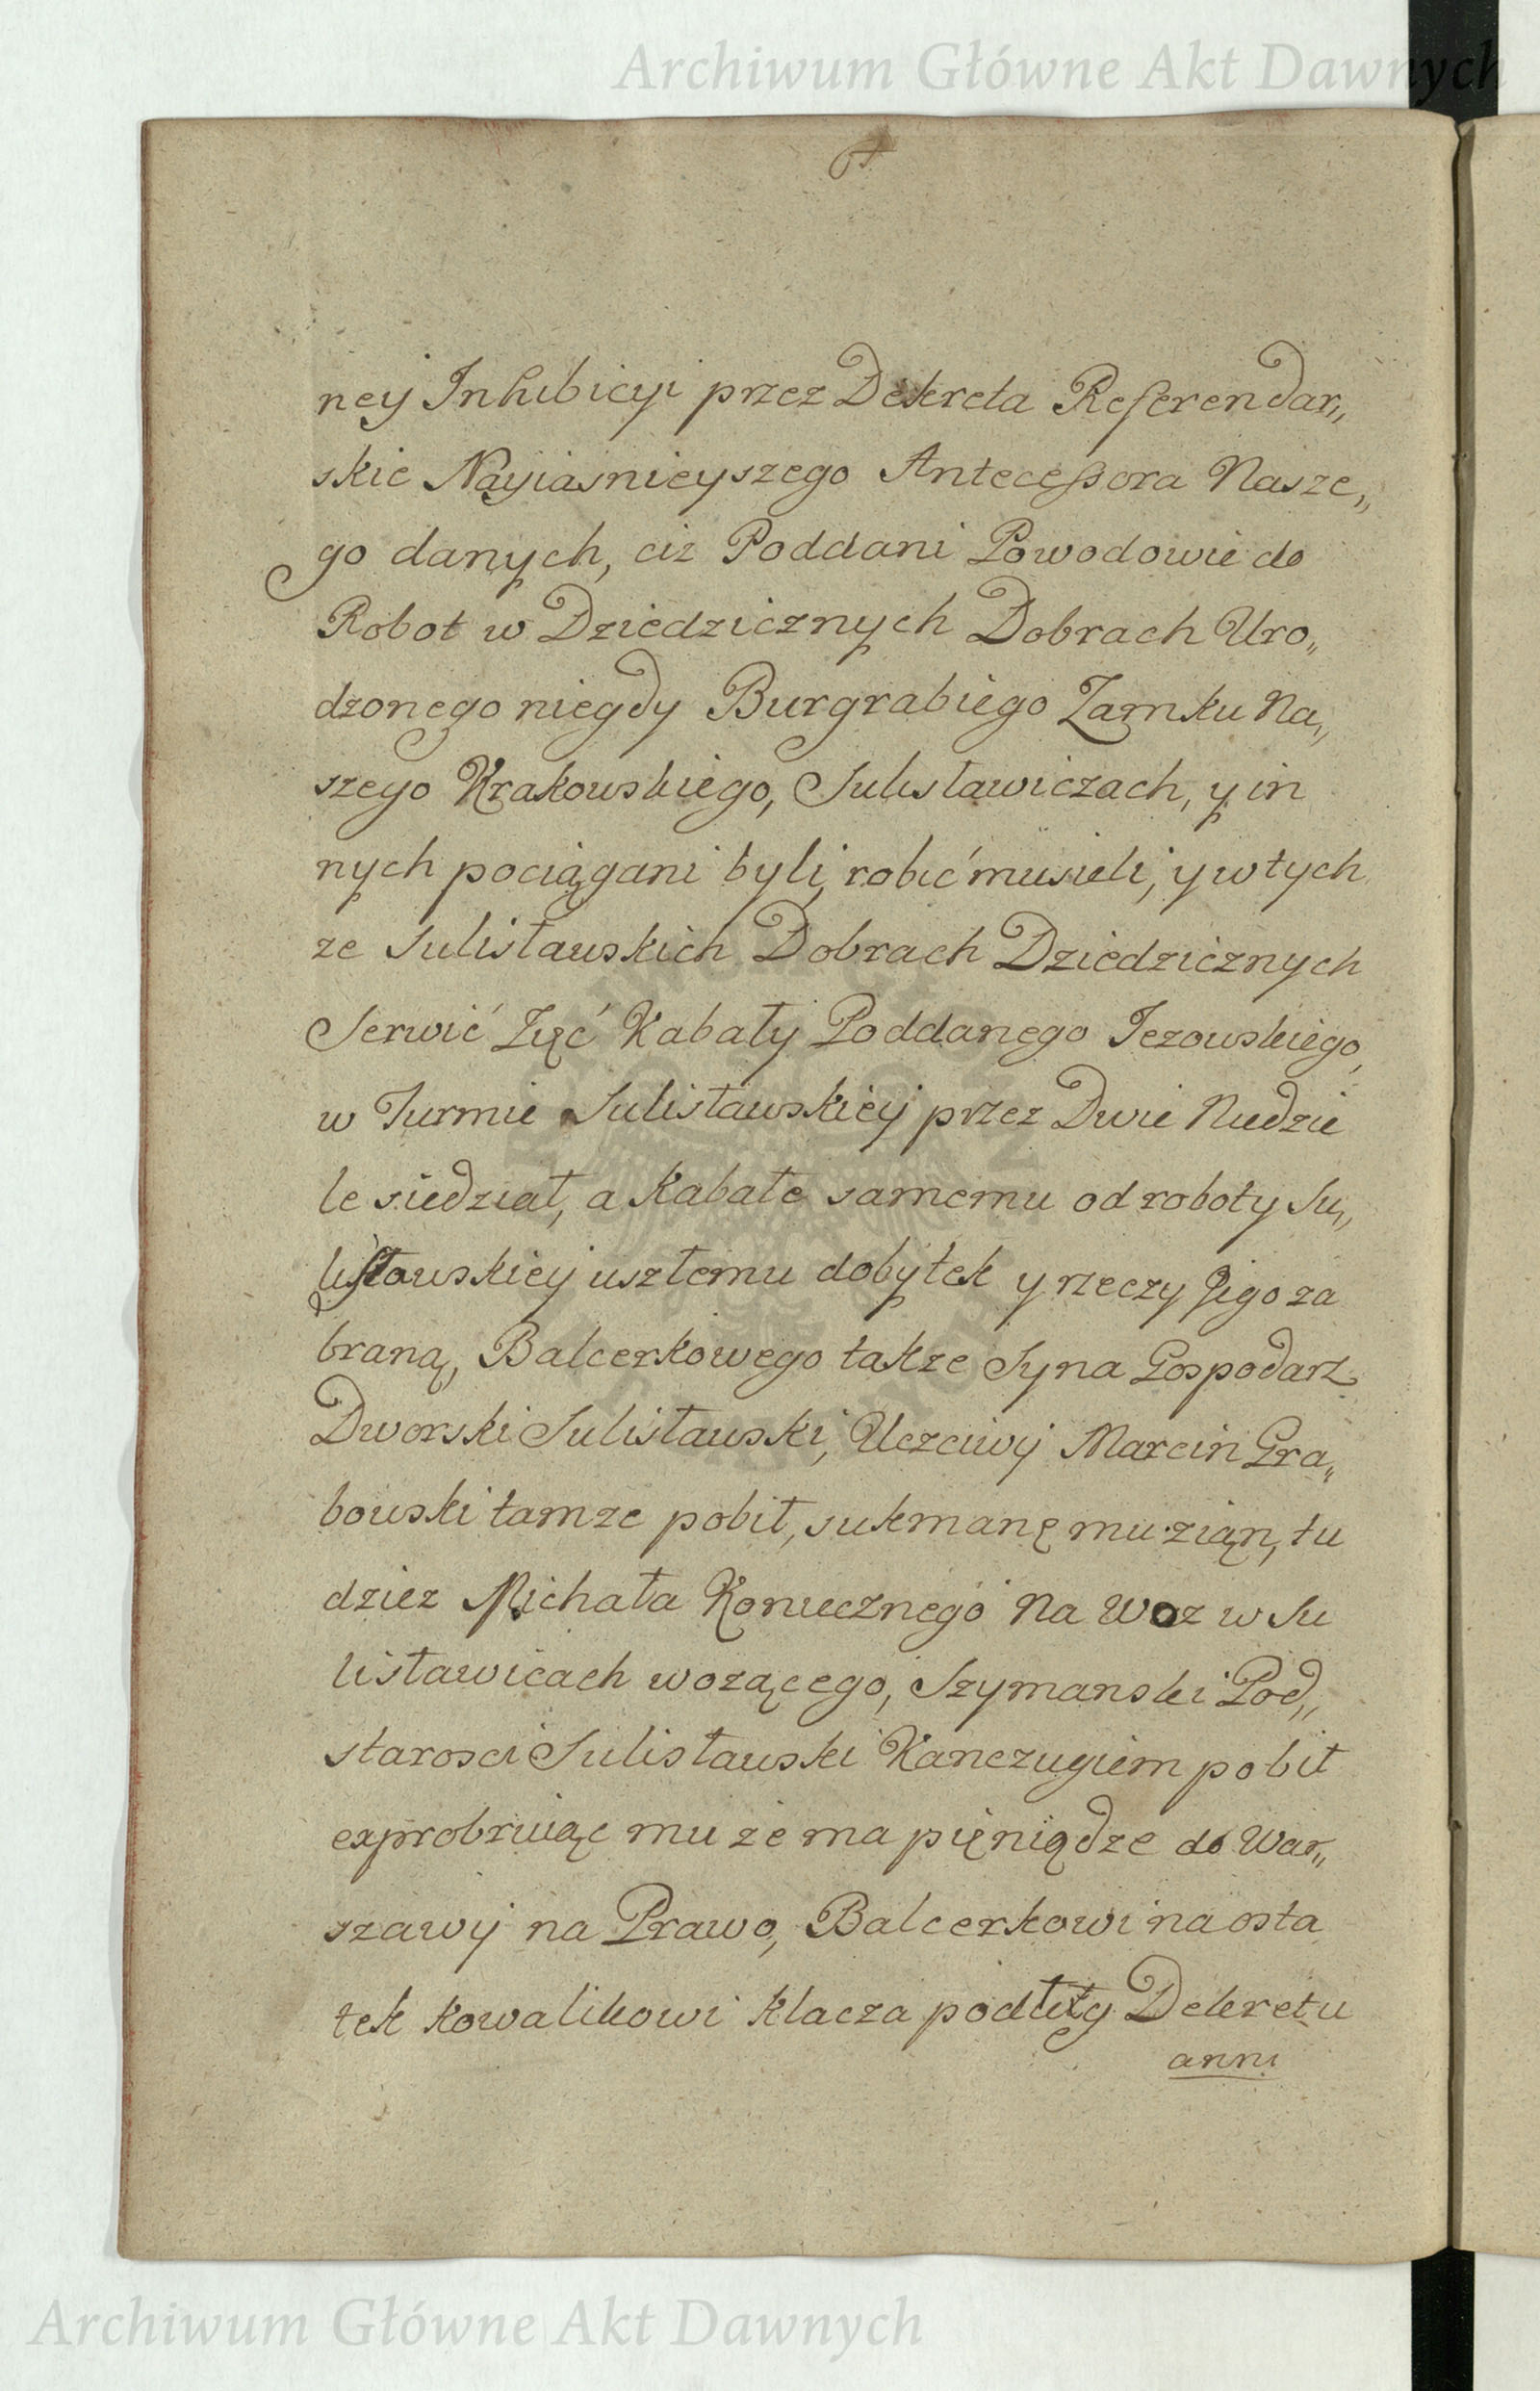 Archiwum Główne Akt Dawnych
ney Inhibicyi przez Dekreta Referendar,,
skie Nayiasnieyszego Antecessora Nasze,,
go danych, ciz Poddani Powodowie do
Robot w Dziedzicznych Dobrach Uro,,
dzonego niegdy Burgrabiego Zamku Na,,
szego Krakowskiego, Sulisławiczach, y in
nych pociągani byli, robić musieli, y w tych
ze Sulisławskich Dobrach Dziedzicznych
Serwić Zięć Kabały Poddanego Jezowskiego,
w Turmie Sulisławskiey przez Dwie Niedzie
le siedział, a Kabale samemu od roboty Su,,
lisławskiey uszłemu dobytek y rzeczy jego za
braną, Balcerkowego także Syna Gospodarz
Dworski Sulisławski, Uczciwy Marcin Gra,,
bowski tamze pobił, sukmanę mu ziąn, tu
dziez Michała Koniecznego na woz w Su
lisławicach wozącego, Szymanski Pod,,
starosci Sulisławski Kanczugiem pobił
exprobruiąc mu ze ma pięniądze do War,,
szawy na Prawo, Balcerkowi na osta
tek kowalikowi klacza podług Dekretu
anni
Archiwum Główne Akt Dawnych